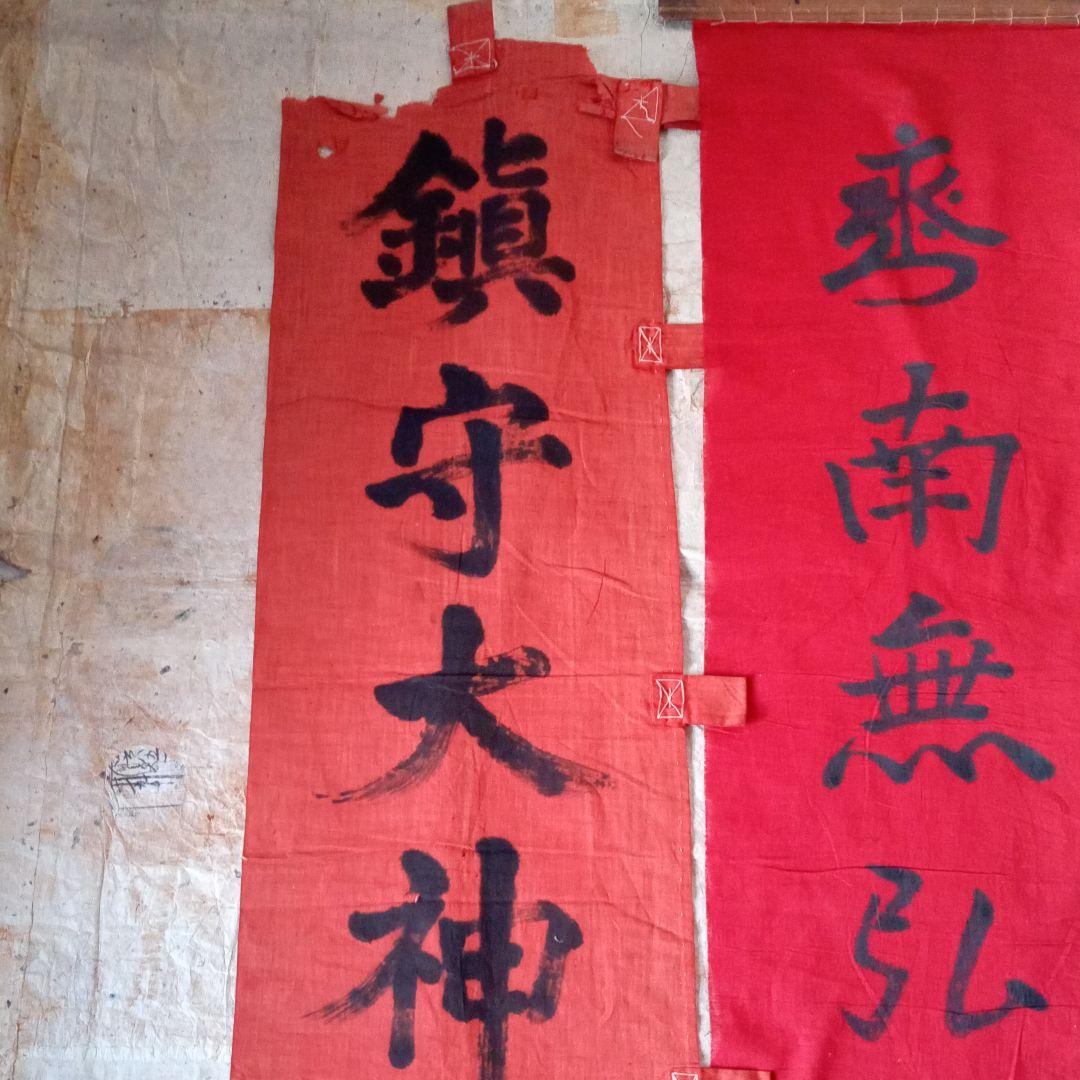 南無弘
鎮守大神